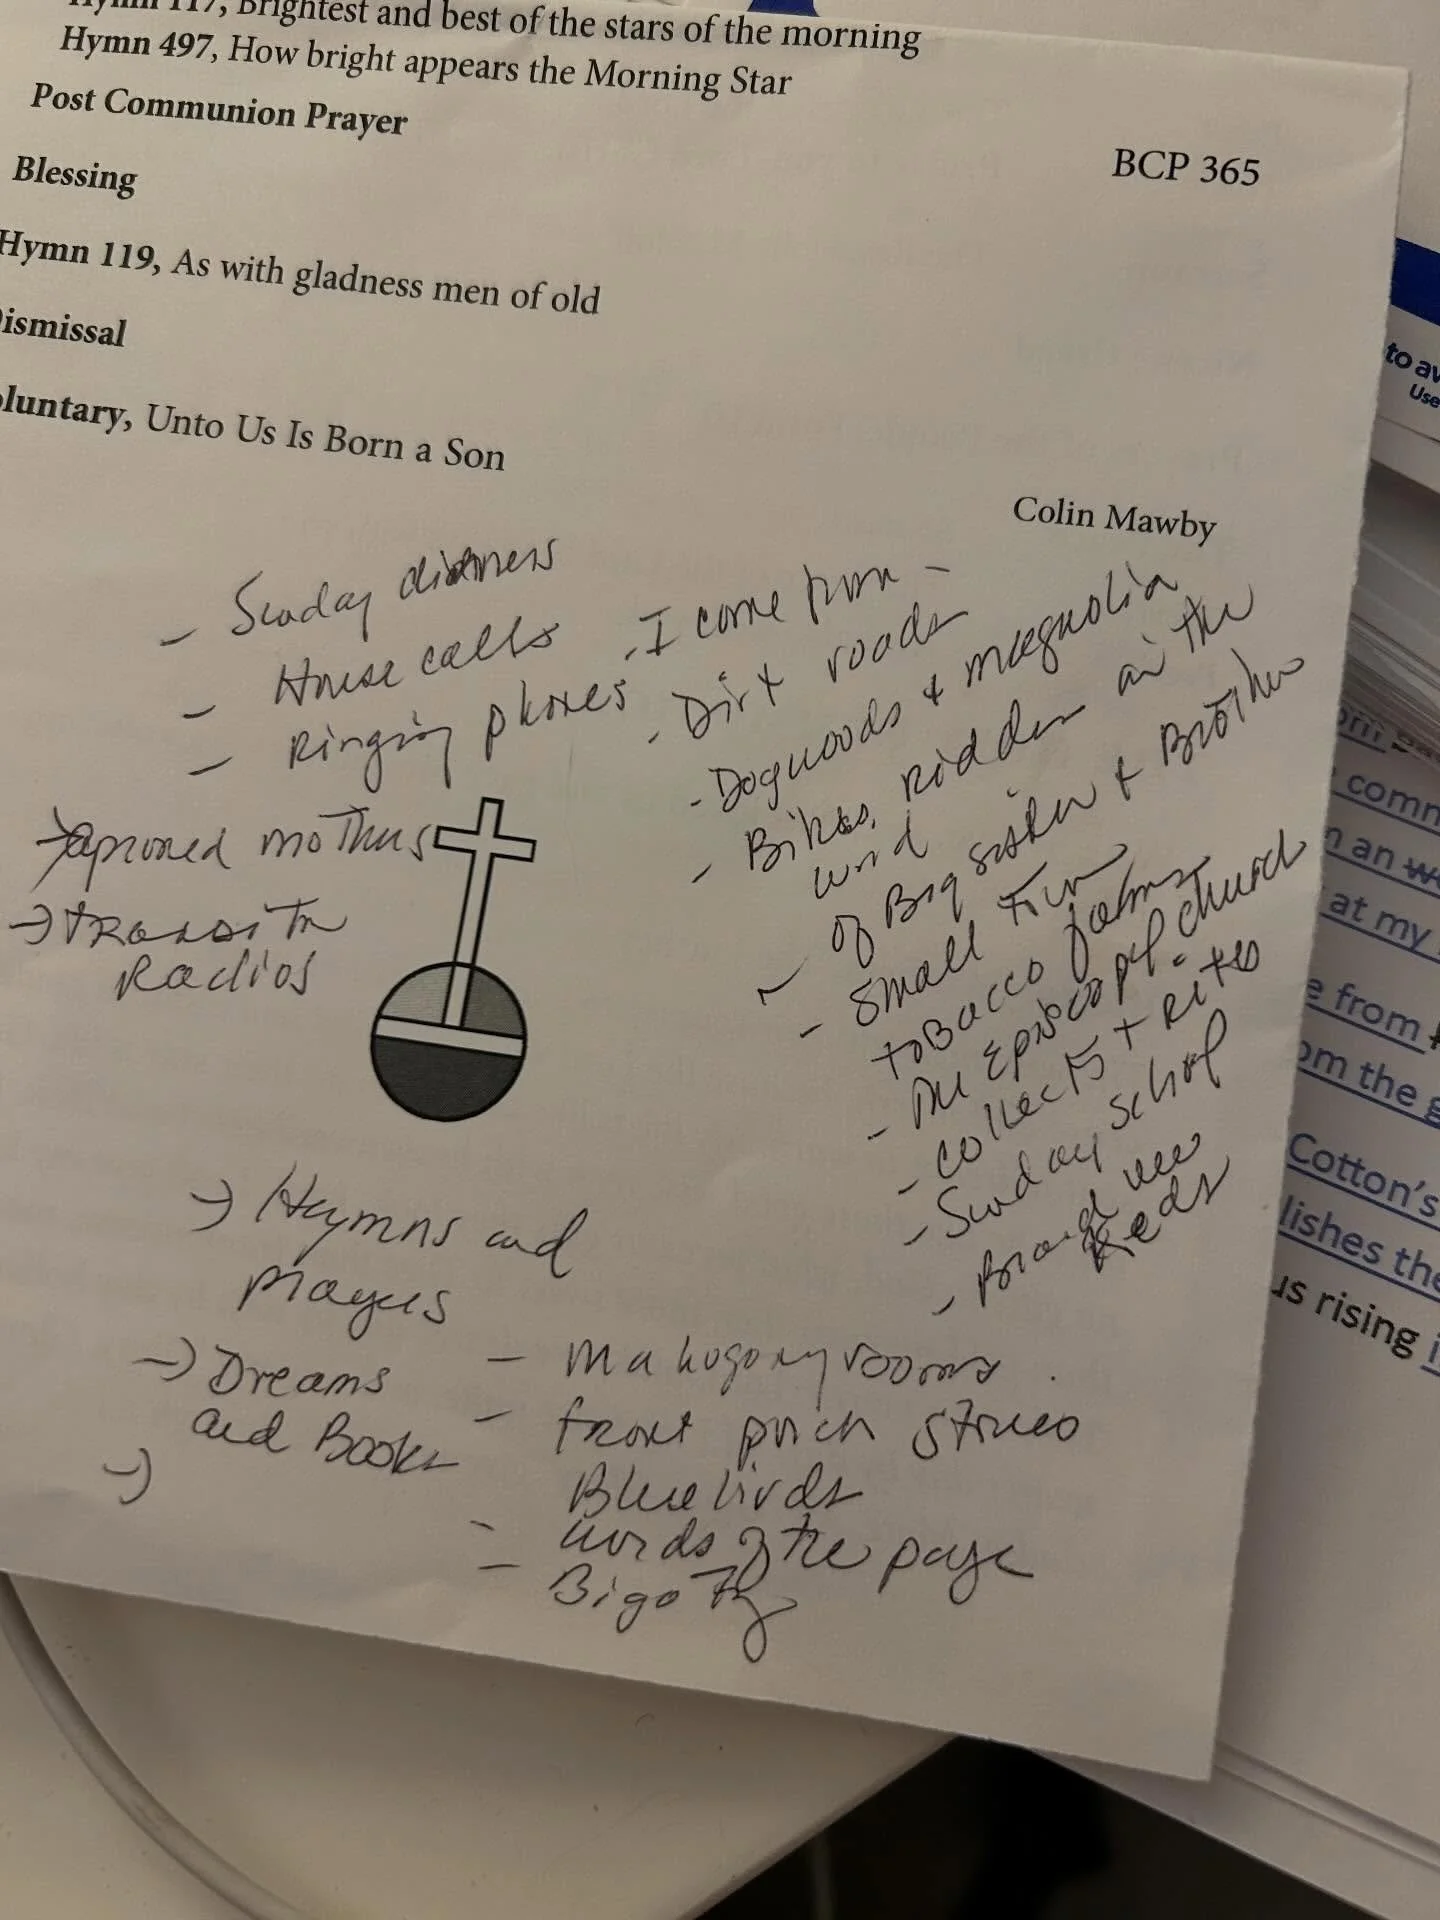 Hymn 117, Brightest and best of the stars of the morning
Hymn 497, How bright appears the Morning Star
Post Communion Prayer
BCP 365
Blessing
Hymn 119, As with gladness men of old
Dismissal
Voluntary, Unto Us Is Born a Son
Colin Mawby
- Sunday dinners
- House calls
- Ringing phones
→ aproned mothers
→ transistr
Radios
I come from -
- Dirt roads
- Dogwoods + magnolia
- Bikes, ridden in the
wind
- of Big sister + Brother
- Small town
tobacco farms
- The Episcopal church
- collects + Rites
- Sunday school
- Brand new
Keds
→ Hymns and
prayers
→ Dreams
and Books
→
- mahogony rooms
- front porch stories
Bluebirds
- words of the page
- Bigotry
to av
Use
comm
n an
at my
e from
om the g
Cotton's
lishes the
us rising i